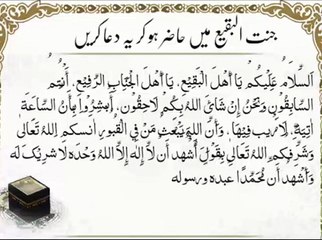 جنت البقیع میں حاضر ہو کر یہ دعا کریں
اَلسَّلَامُ عَلَيْكُمْ يَا أَهْلَ الْبَقِيْعِ، يَا أَهْلَ الْجَنَابِ الرَّفِيْعِ، أَنْتُمُ
السَّابِقُوْنَ وَنَحْنُ إِنْ شَائَ اللهُ بِكُمْ لَاحِقُوْنَ، أَبْشِرُوْا بِأَنَّ السَّاعَةَ
اٰتِيَةٌ لَارَيْبَ فِيْهَا، وَأَنَّ اللهَ يَبْعَثُ مَنْ فِي الْقُبُوْرِ اٰنسكم اللهُ تَعَالٰى
وَشَرَّفَكُم اللهُ تَعَالٰى بِقَوْلِ أَشْهَدُ أَنْ لَّا إِلٰهَ إِلَّا اللهُ وَحْدَهٗ لَاشَرِيْكَ لَهٗ
وَأَشْهَدُ أَنَّ مُحَمَّدًا عبدهٗ ورسولهٗ